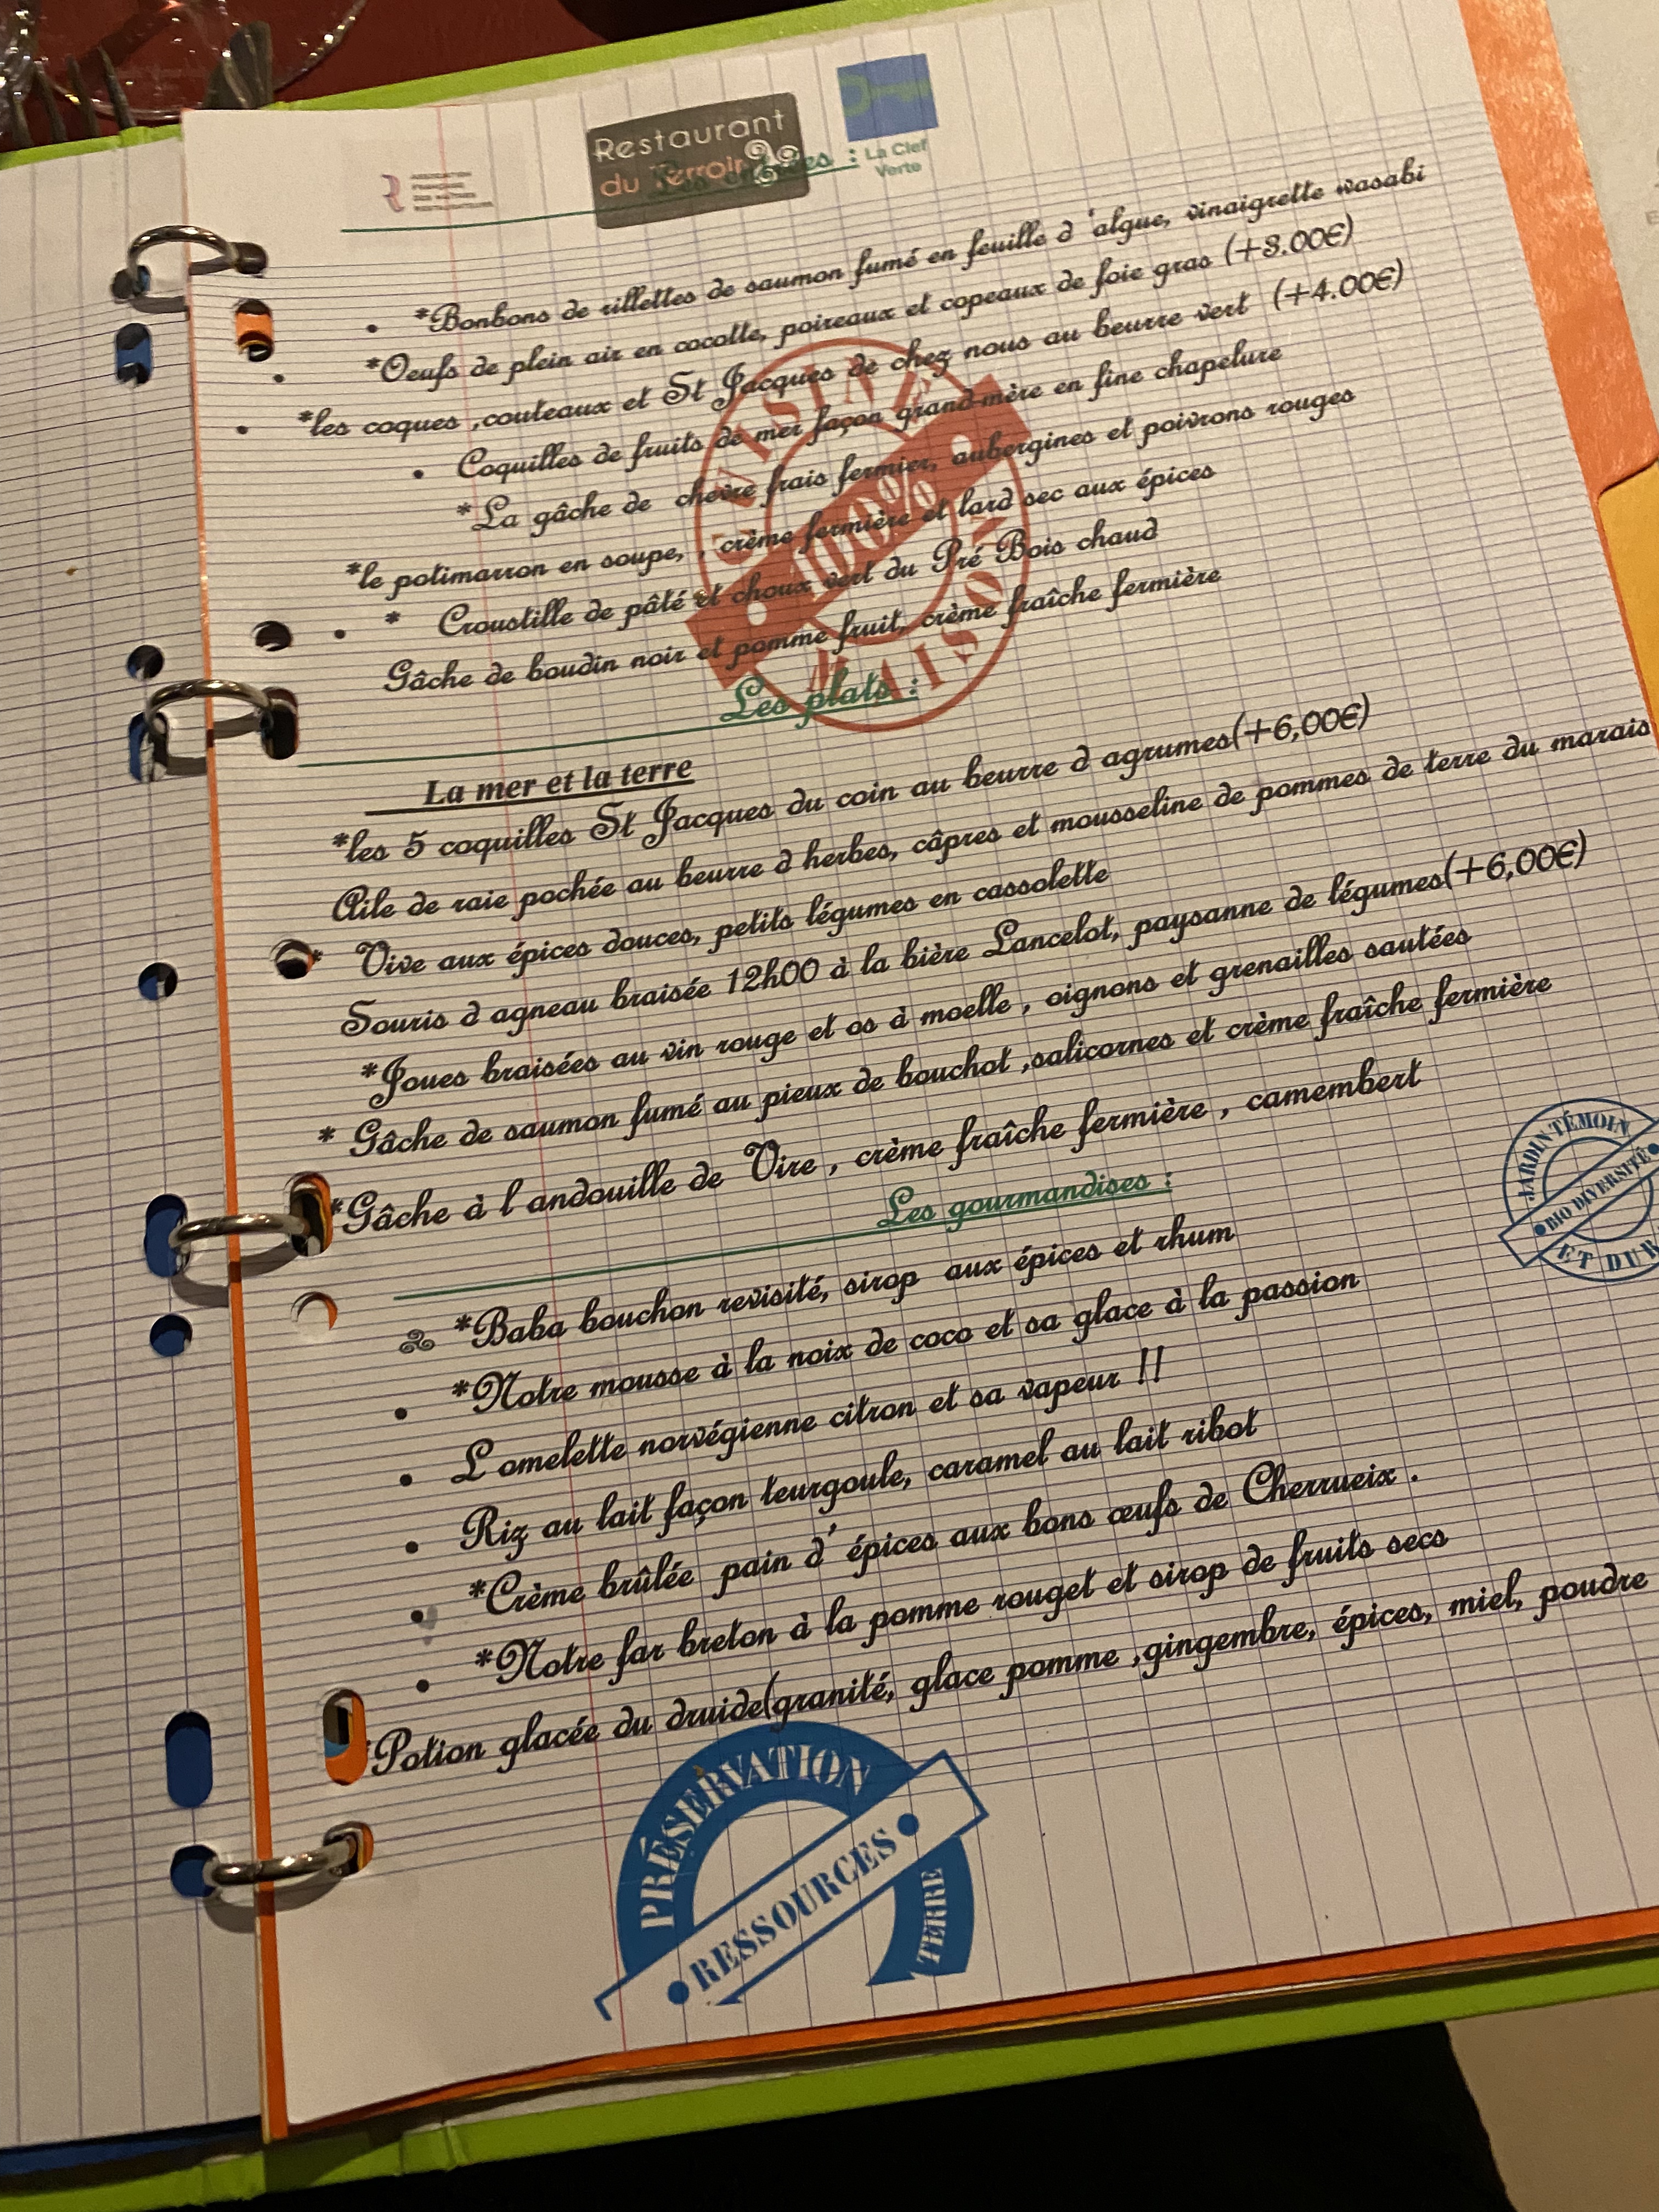 ASSOCIATION
FRANÇAISE
DES MAÎTRES
RESTAURATEURS
Restaurant
du Terroir
La Clef
Verte
Les entrées :
*Bonbons de rillettes de saumon fumé en feuille d 'algue, vinaigrette wasabi
*Oeufs de plein air en cocotte, poireaux et copeaux de foie gras (+3.00€)
*les coques ,couteaux et St Jacques de chez nous au beurre vert (+4.00€)
Coquilles de fruits de mer façon grand-mère en fine chapelure
*La gâche de chevre frais fermier, aubergines et poivrons rouges
*le potimarron en soupe, , crème fermière et lard sec aux épices
* Croustille de pâté et choux vert du Pré Bois chaud
Gâche de boudin noir et pomme fruit, crème fraîche fermière
CUISINÉ
100%
MAISON
Les plats :
La mer et la terre
*les 5 coquilles St Jacques du coin au beurre d agrumes(+6,00€)
Aile de raie pochée au beurre d herbes, câpres et mousseline de pommes de terre du marais
* Vive aux épices douces, petits légumes en cassolette
Souris d agneau braisée 12h00 à la bière Lancelot, paysanne de légumes(+6,00€)
*Joues braisées au vin rouge et os à moelle , oignons et grenailles sautées
* Gâche de saumon fumé au pieux de bouchot ,salicornes et crème fraîche fermière
*Gâche à l andouille de Vire , crème fraîche fermière , camembert
JARDIN TÉMOIN
BIO DIVERSITÉ
ET DUR
Les gourmandises :
*Baba bouchon revisité, sirop aux épices et rhum
*Notre mousse à la noix de coco et sa glace à la passion
L omelette norvégienne citron et sa vapeur !!
Riz au lait façon teurgoule, caramel au lait ribot
*Crème brûlée pain d' épices aux bons œufs de Cherrueix .
*Notre far breton à la pomme rouget et sirop de fruits secs
*Potion glacée du druide(granité, glace pomme ,gingembre, épices, miel, poudre
PRÉSERVATION
RESSOURCES
TERRE